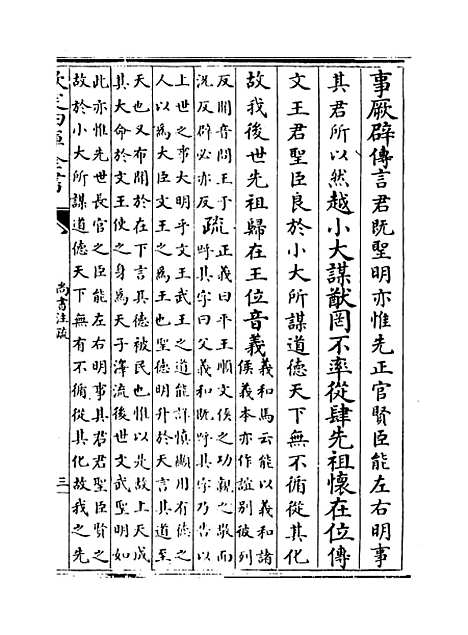 事厥辟傳言君既聖明亦惟先正官賢臣能左右明事
其君所以然越小大謀猷罔不率從肆先祖懷在位傳
文王君聖臣良於小大所謀道德天下無不循從其化
故我後世先祖歸在王位音義
義和馬云能以義和諸
侯義本亦作誼別彼列
反聞音問王于
況反辟必亦反
疏
正義曰平王順文侯之功親之敬而
呼其字曰父義和既呼其字乃告以
上世之事大明乎文王武王之道能詳慎顯用有德之
人以為大臣文王之為王也聖德明升於天言其道至
天也又布聞於在下言其德被民也惟以是故上天成
其大命於文王使之身為天子澤流後世文武聖明如
此亦惟先世長官之臣能左右明事其君君聖臣賢之
故於小大所謀道德天下無有不循從其化故我之先
欽定四庫全書
尚書注疏